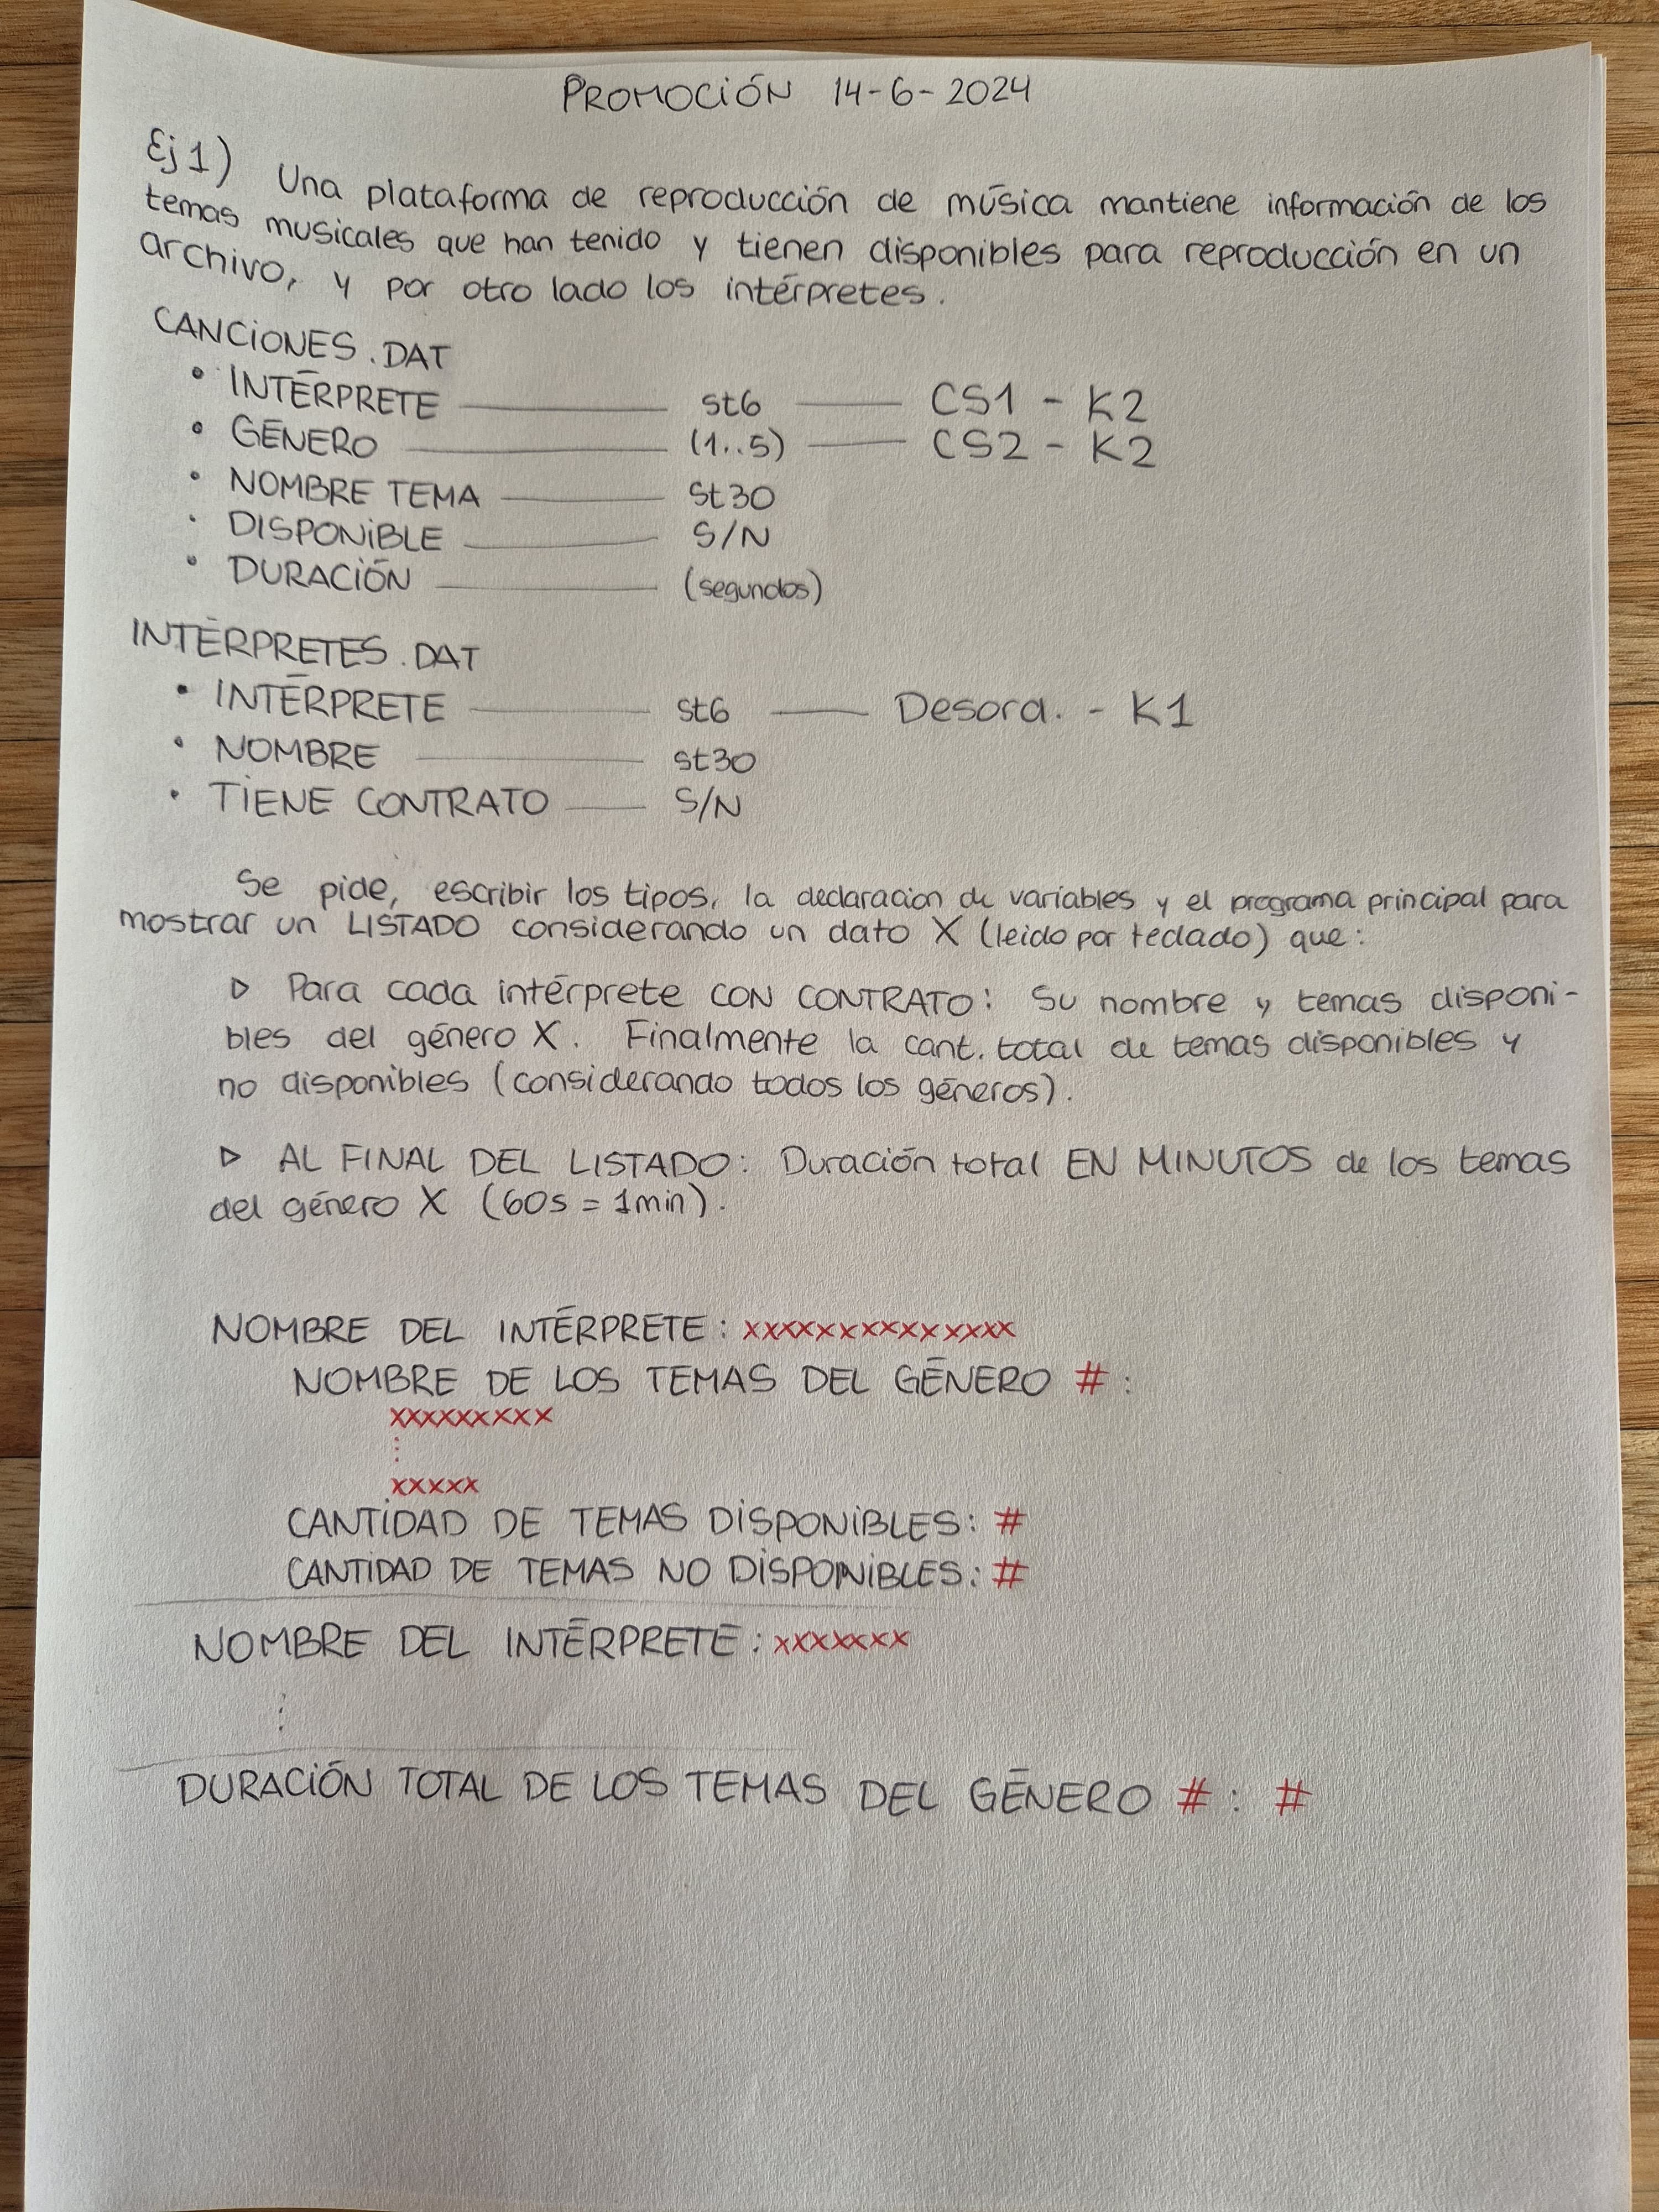 PROMOCIÓN 14-6-2024
Ej 1) Una plataforma de reproducción de música mantiene información de los
temas musicales que han tenido y tienen disponibles para reproducción en un
archivo, y por otro lado los intérpretes.
CANCIONES.DAT
• INTÉRPRETE — st6 — CS1 - K2
• GÉNERO — (1..5) — CS2 - K2
• NOMBRE TEMA — St30
• DISPONIBLE — S/N
• DURACIÓN — (segundos)
INTÉRPRETES.DAT
• INTÉRPRETE — st6 — Desord. - K1
• NOMBRE — st30
• TIENE CONTRATO — S/N
Se pide, escribir los tipos, la declaración de variables y el programa principal para
mostrar un LISTADO considerando un dato X (leido por teclado) que:
▷ Para cada intérprete CON CONTRATO: Su nombre y temas disponi-
bles del género X. Finalmente la cant. total de temas disponibles y
no disponibles (considerando todos los géneros).
▷ AL FINAL DEL LISTADO: Duración total EN MINUTOS de los temas
del género X (60s = 1min).
NOMBRE DEL INTÉRPRETE: xxxxxxxxxxxxxxx
NOMBRE DE LOS TEMAS DEL GÉNERO #:
xxxxxxxxx
⋮
xxxxx
CANTIDAD DE TEMAS DISPONIBLES: #
CANTIDAD DE TEMAS NO DISPONIBLES: #
NOMBRE DEL INTÉRPRETE: xxxxxxx
⋮
DURACIÓN TOTAL DE LOS TEMAS DEL GÉNERO #: #